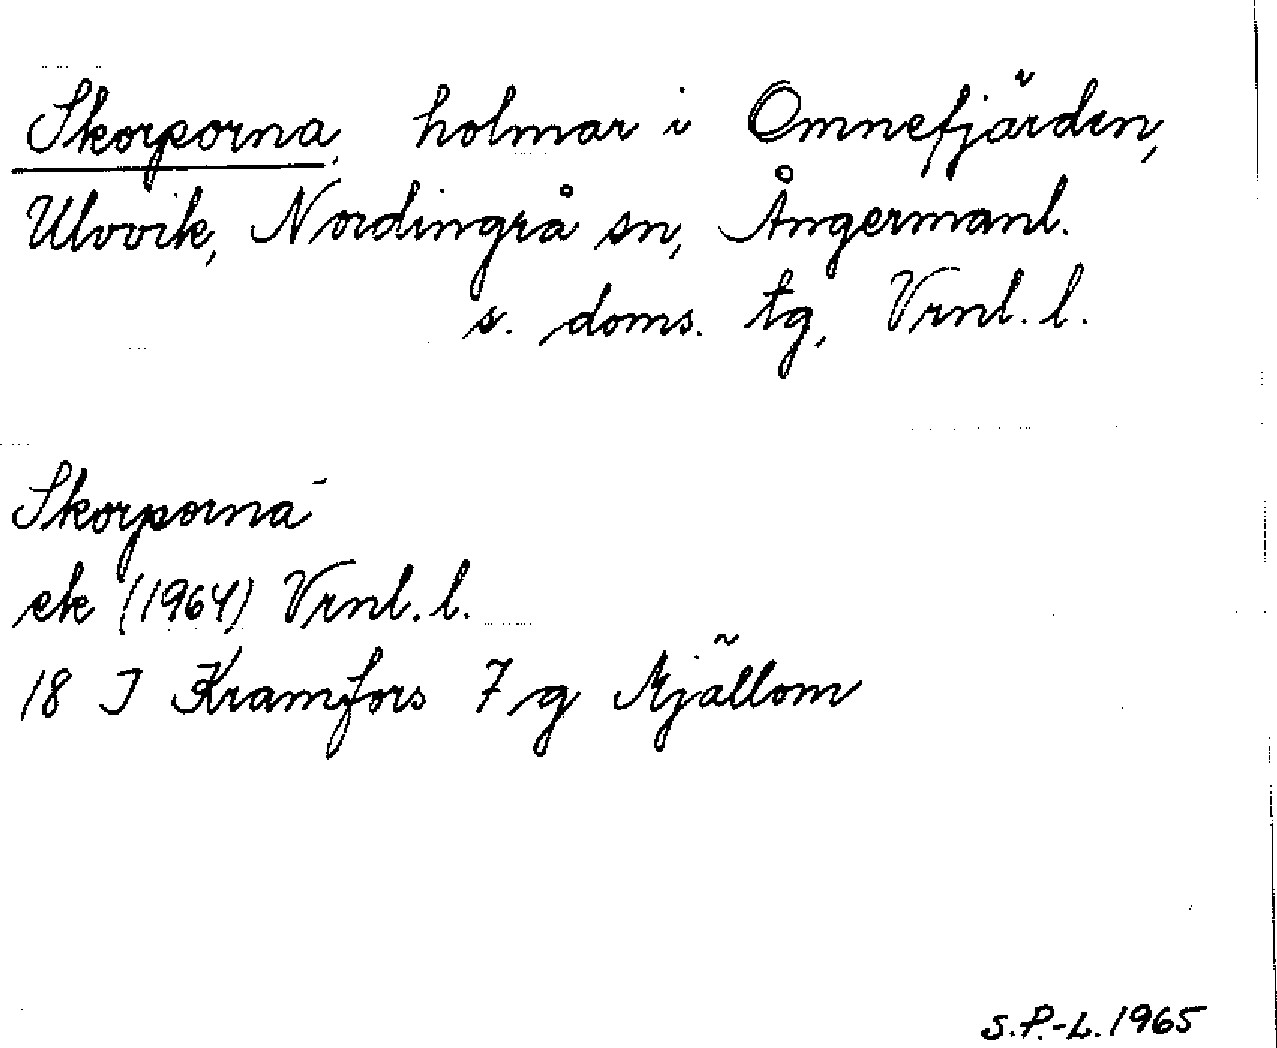 Skorporna, holmar i Omnefjärden,
Ulvvik, Nordingrå sn, Ångermanl.
s. doms. tg, Vrnl. l.
Skorporna
ek (1964) Vrnl. l.
18 I Kramfors 7 g Mjällom
S.P.-L. 1965